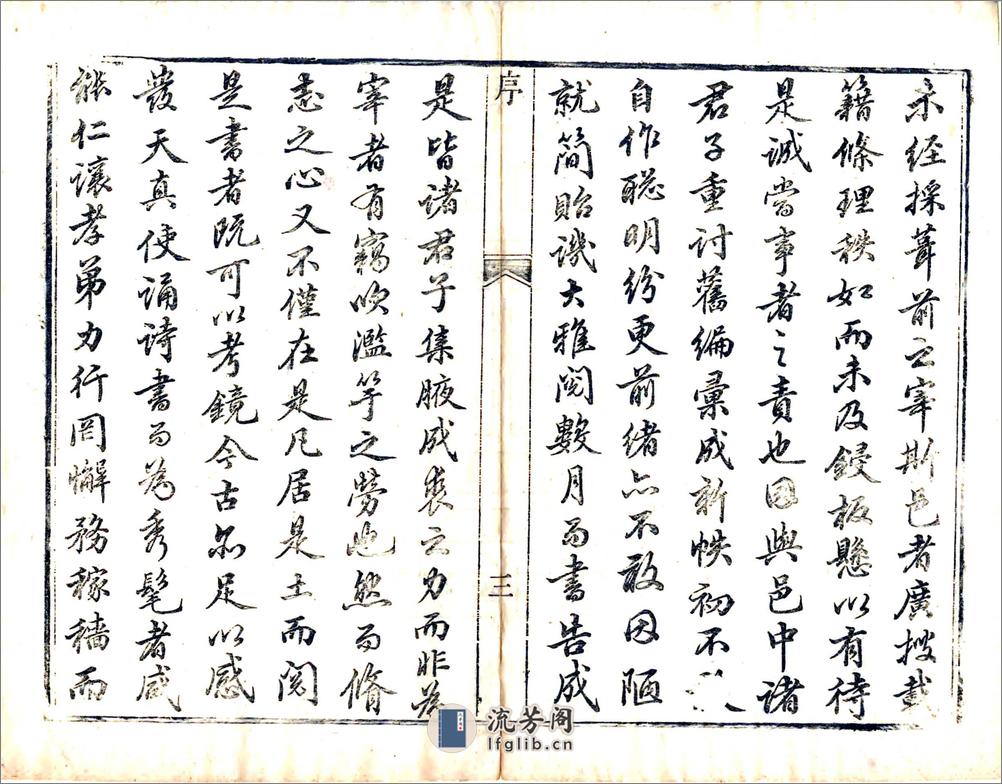 未经採葺前之宰斯邑者廣搜載
籍條理秩如而未及鋟板懸以有待
是誠當事者之責也因與邑中諸
君子重討舊編彙成新帙初不
自作聡明紛更前緒亦不敢因陋
就簡貽譏大雅閱數月而書告成
序
三
是皆諸君子集腋成裘之力而非為
宰者有竊吹濫竽之勞也然而脩
志之心又不僅在是凡居是土而閱
是書者既可以考鏡今古亦足以感
發天真使誦詩書而為秀髦者咸
能仁讓孝弟力行罔懈務稼穡而
流芳阁
lfglib.cn